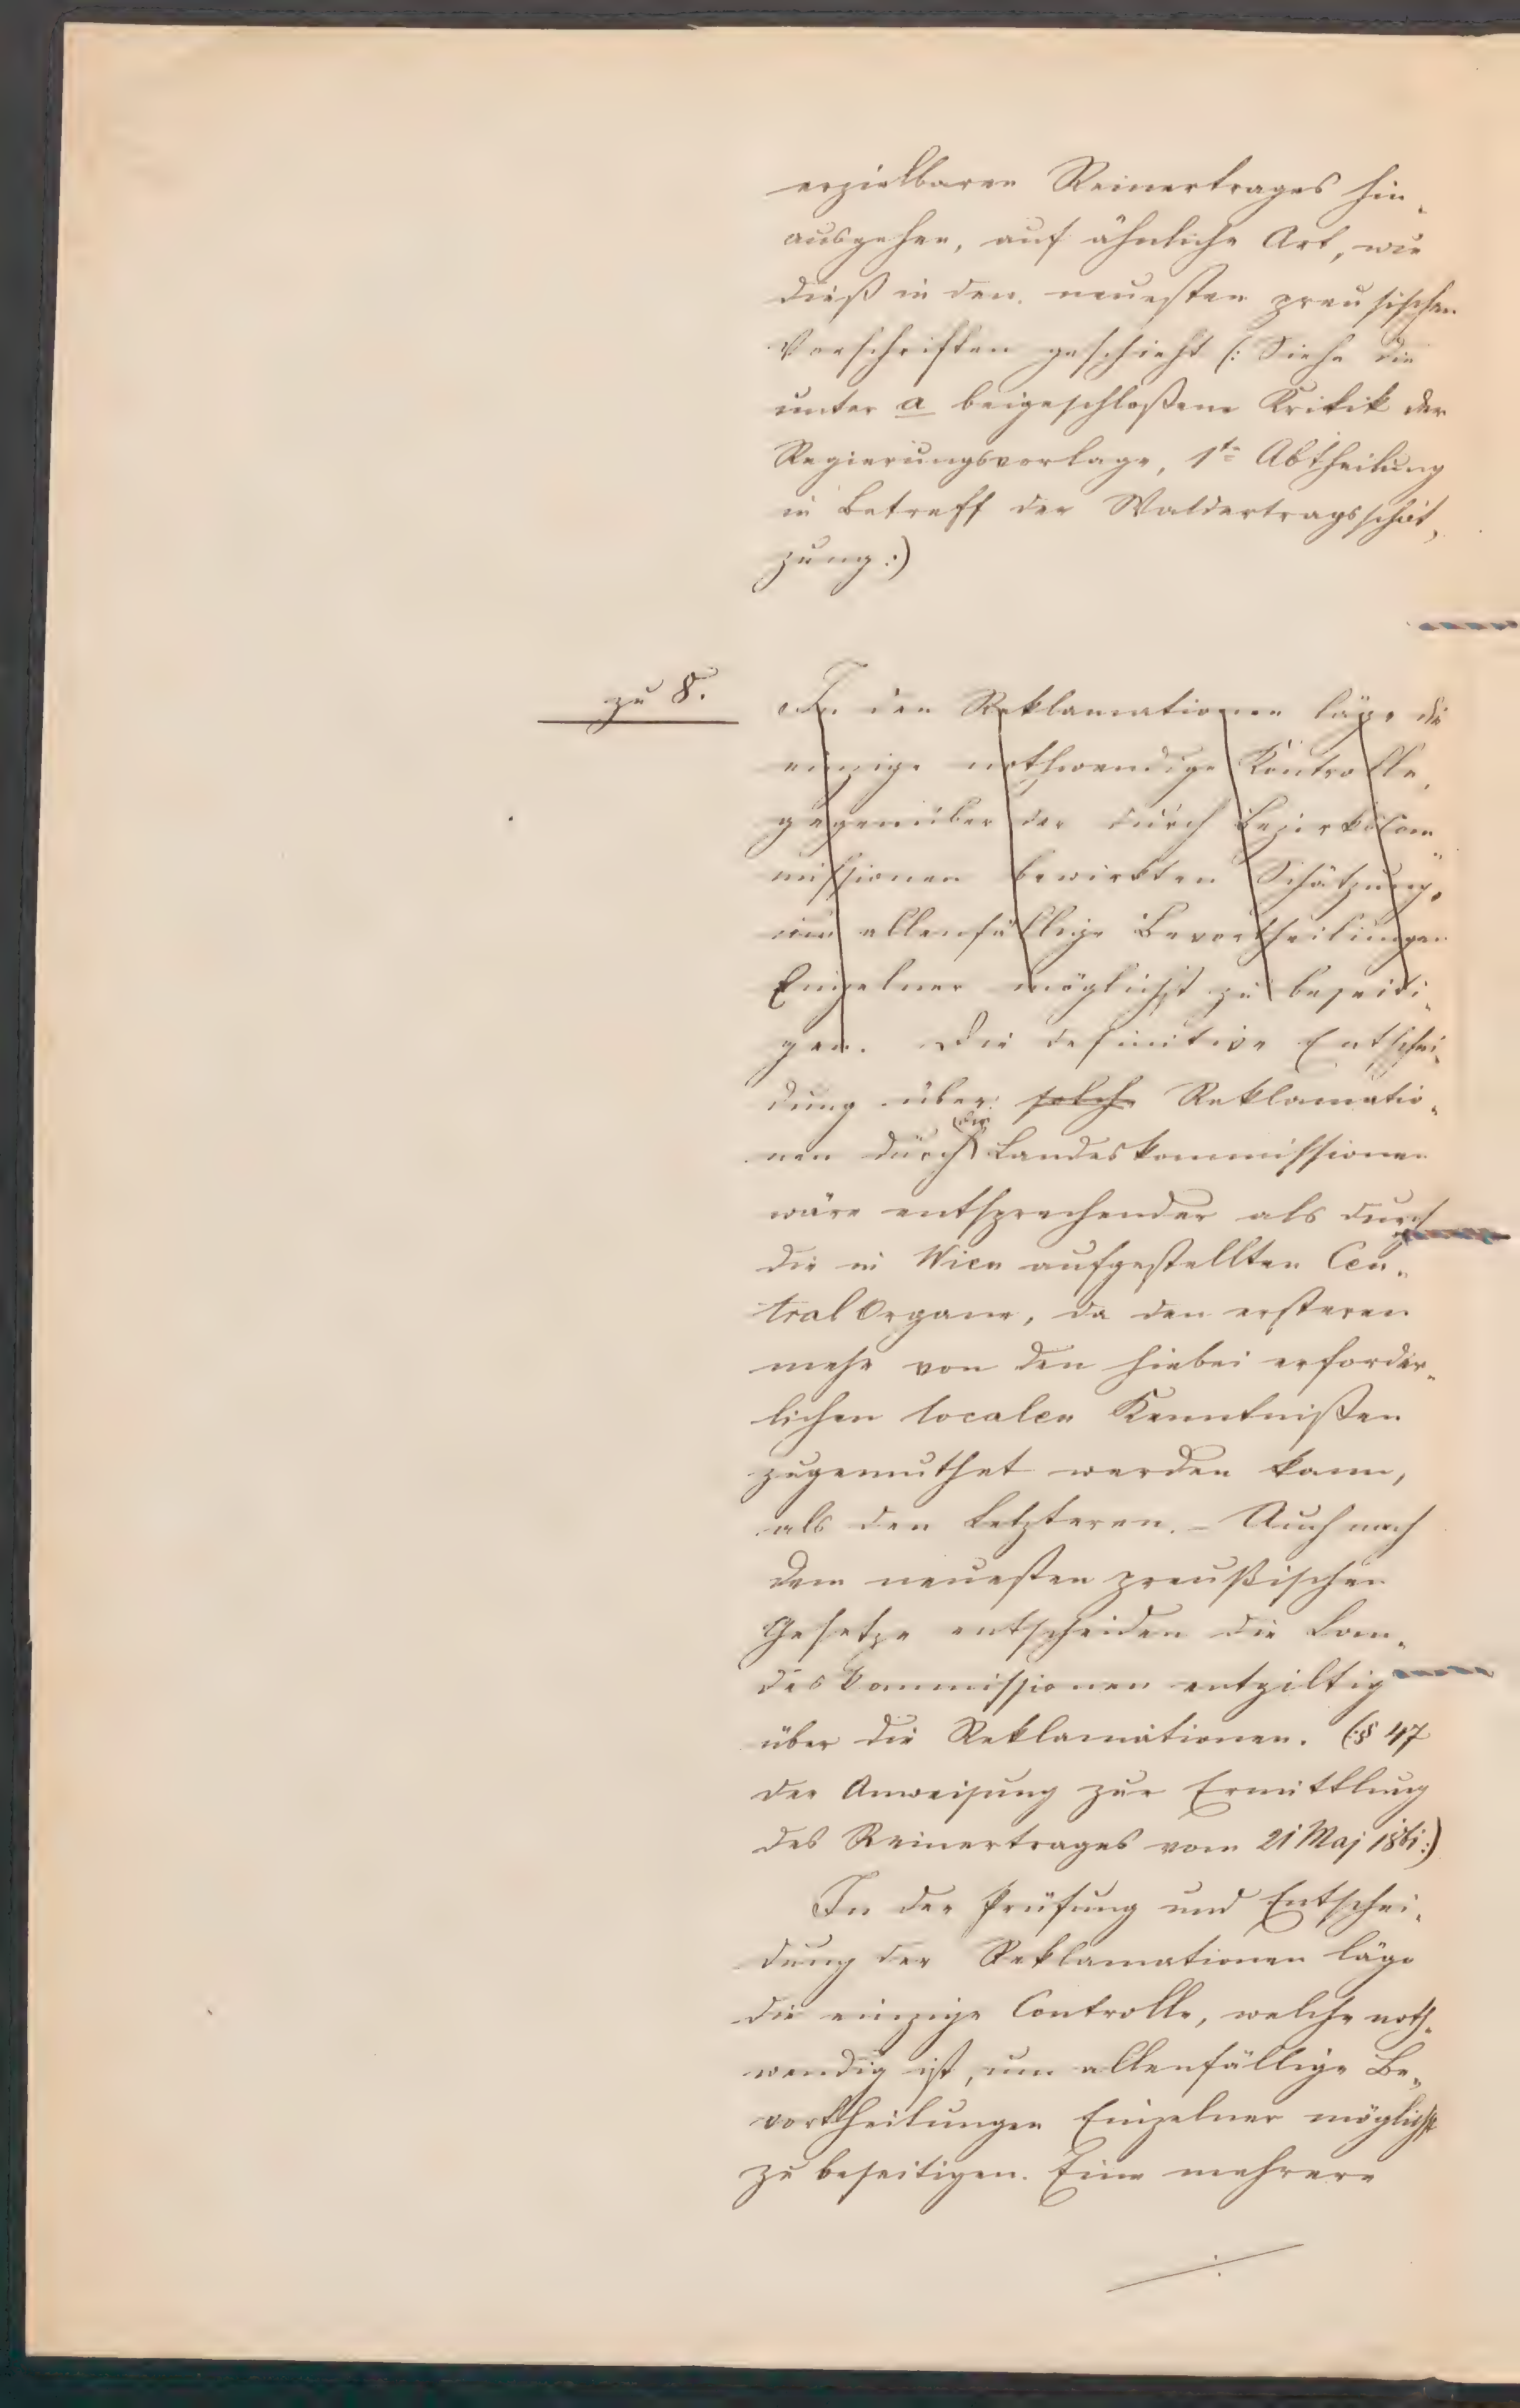 erzielbaren Reinertrages hin„
ausgehen, auf ähnliche Art, wie
dieß in den neuesten preusischen
Vorschriften geschieht (: Siehe die
unter a beigeschloßene Kritik der
Regierungsvorlage, 1te Abtheilung
in Betreff der Waldertragsschät„
zung :)
zu 8.
In den Reklamationen läge die
einzige nothwendige Kontrolle,
gegenüber der durch Bezirkscom„
missionen bewirkten Schätzung,
um allenfällige Bevortheilungen
Einzelner möglichst zu beseiti„
gen. Die definitive Entschei„
dung über solche Reklamatio„
nen durch die Landeskommissionen
wäre entsprechender als durch
die in Wien aufgestellten Cen„
tral Organe, da den ersteren
mehr von den hiebei erforder„
lichen localen Kenntnißen
zugemuthet werden kann,
als den Letzteren. – Auch nach
dem neuesten preußischen
Gesetze entscheiden die Lan„
deskommissionen entgiltig
über die Reklamationen. (:§ 47
der Anweisung zur Ermittlung
des Reinertrages vom 21 Maj 1861:)
In der Prüfung und Entschei„
dung der Reklamationen läge
die einzige Controlle, welche noth„
wendig ist, um allenfällige Be„
vortheilungen Einzelner möglichst
zu beseitigen. Eine mehrere